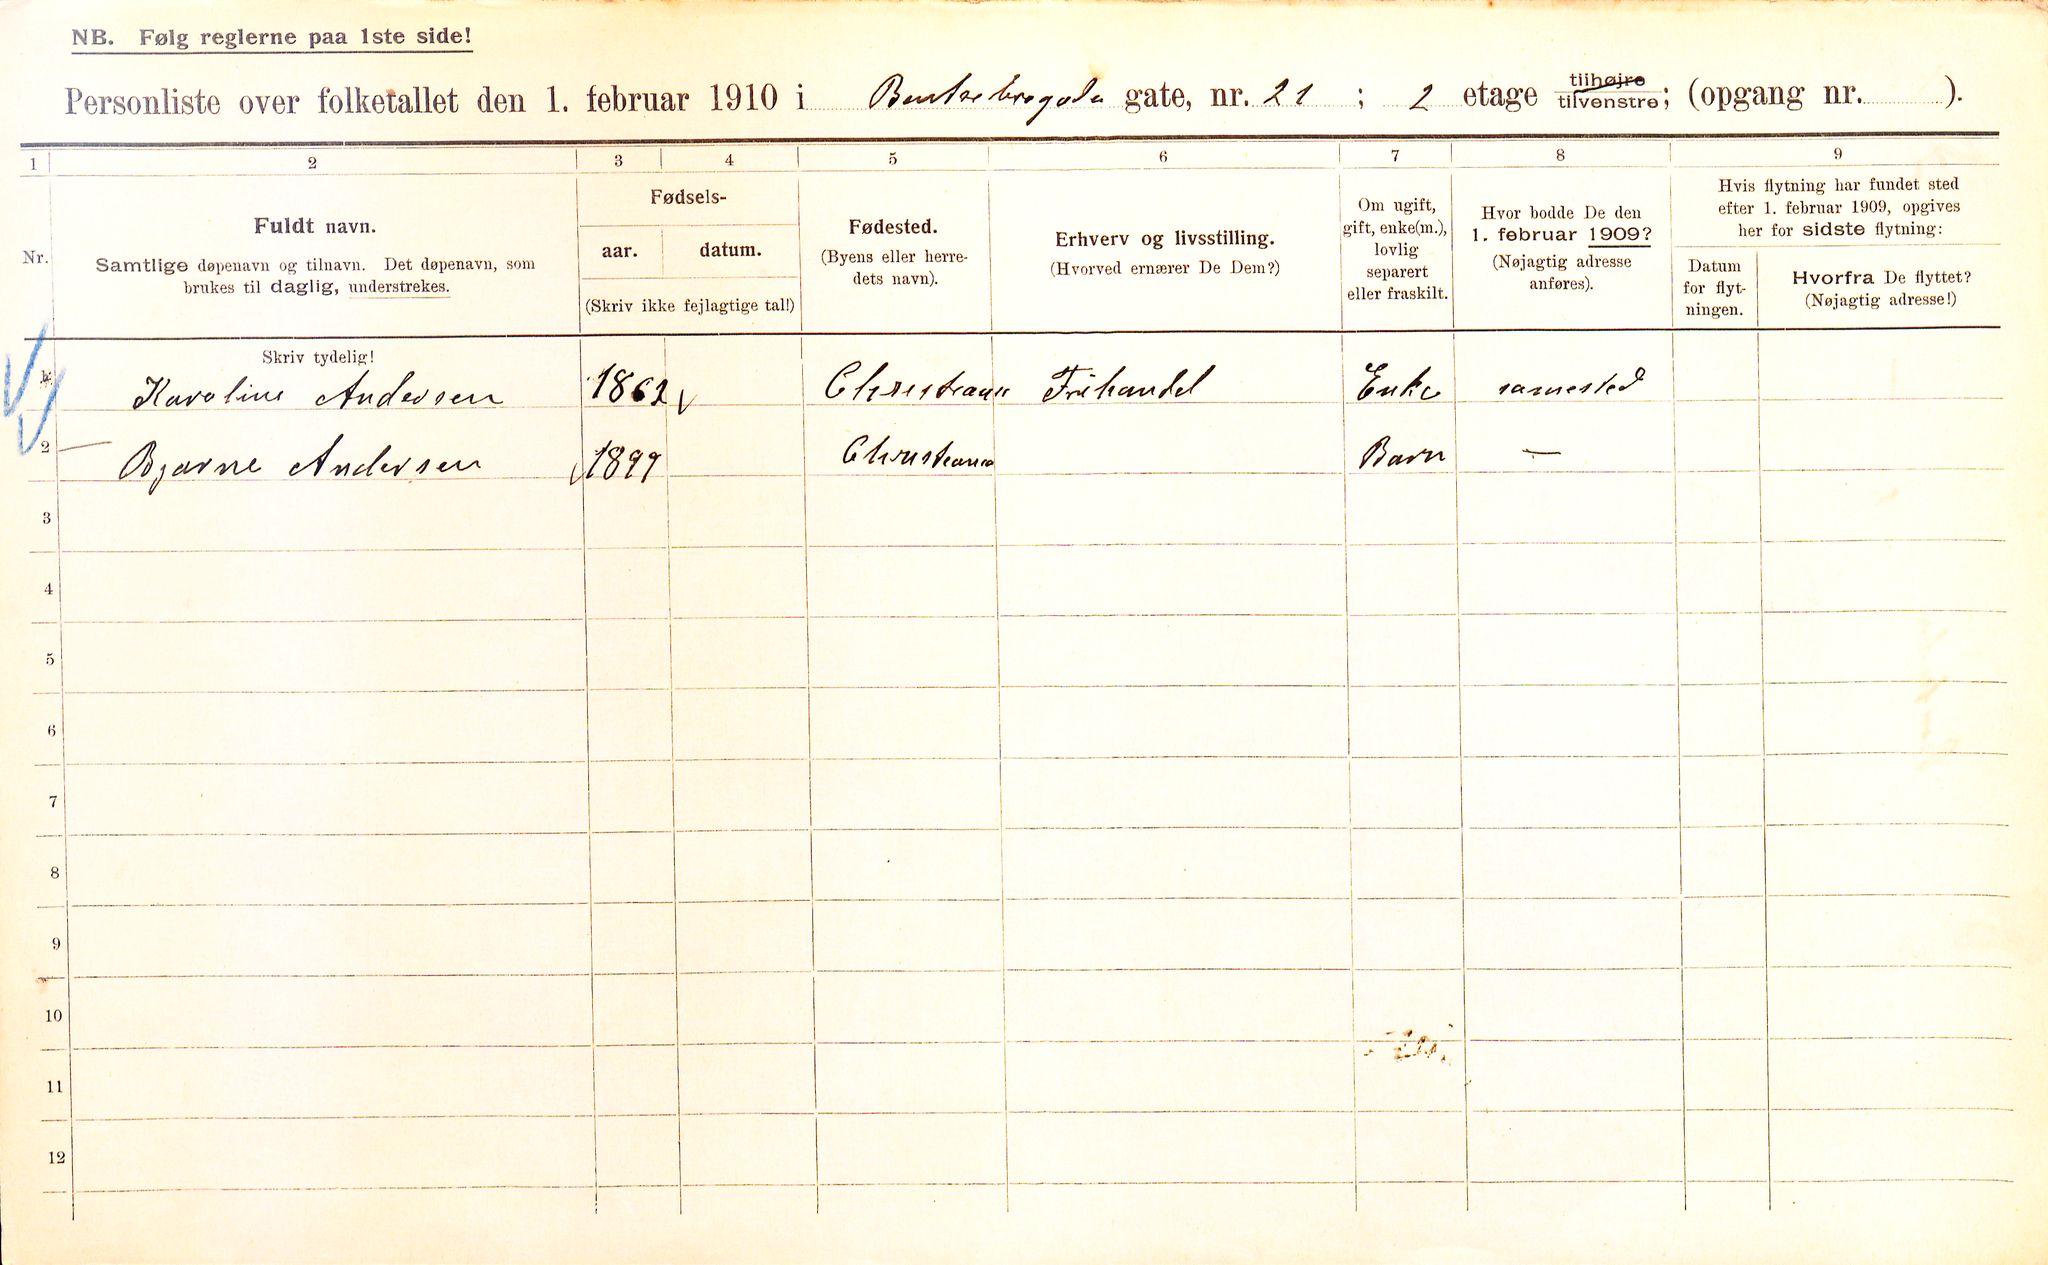 NB. Følg reglerne paa 1ste side!
Personliste over folketallet den 1. februar 1910 i Bentsebrogada gate, nr. 21 ; 2 etage tilhøjre tilvenstre; (opgang nr. ).
1 2 3 4 5 6 7 8 9
Nr.
Fuldt navn.
Samtlige døpenavn og tilnavn. Det døpenavn, som
brukes til daglig, understrekes.
Fødsels-
aar. datum.
(Skriv ikke fejlagtige tal!)
Fødested.
(Byens eller herre-
dets navn).
Erhverv og livsstilling.
(Hvorved ernærer De Dem?)
Om ugift,
gift, enke(m.),
lovlig
separert
eller fraskilt.
Hvor bodde De den
1. februar 1909?
(Nøjagtig adresse
anføres).
Hvis flytning har fundet sted
efter 1. februar 1909, opgives
her for sidste flytning:
Datum
for flyt-
ningen.
Hvorfra De flyttet?
(Nøjagtig adresse!)
Skriv tydelig!
Karoline Andersen 1862 Christiania Frihandel Enke samested
2 Bjarne Andersen 1899 Christiania Barn —
3
4
5
6
7
8
9
10
11
12